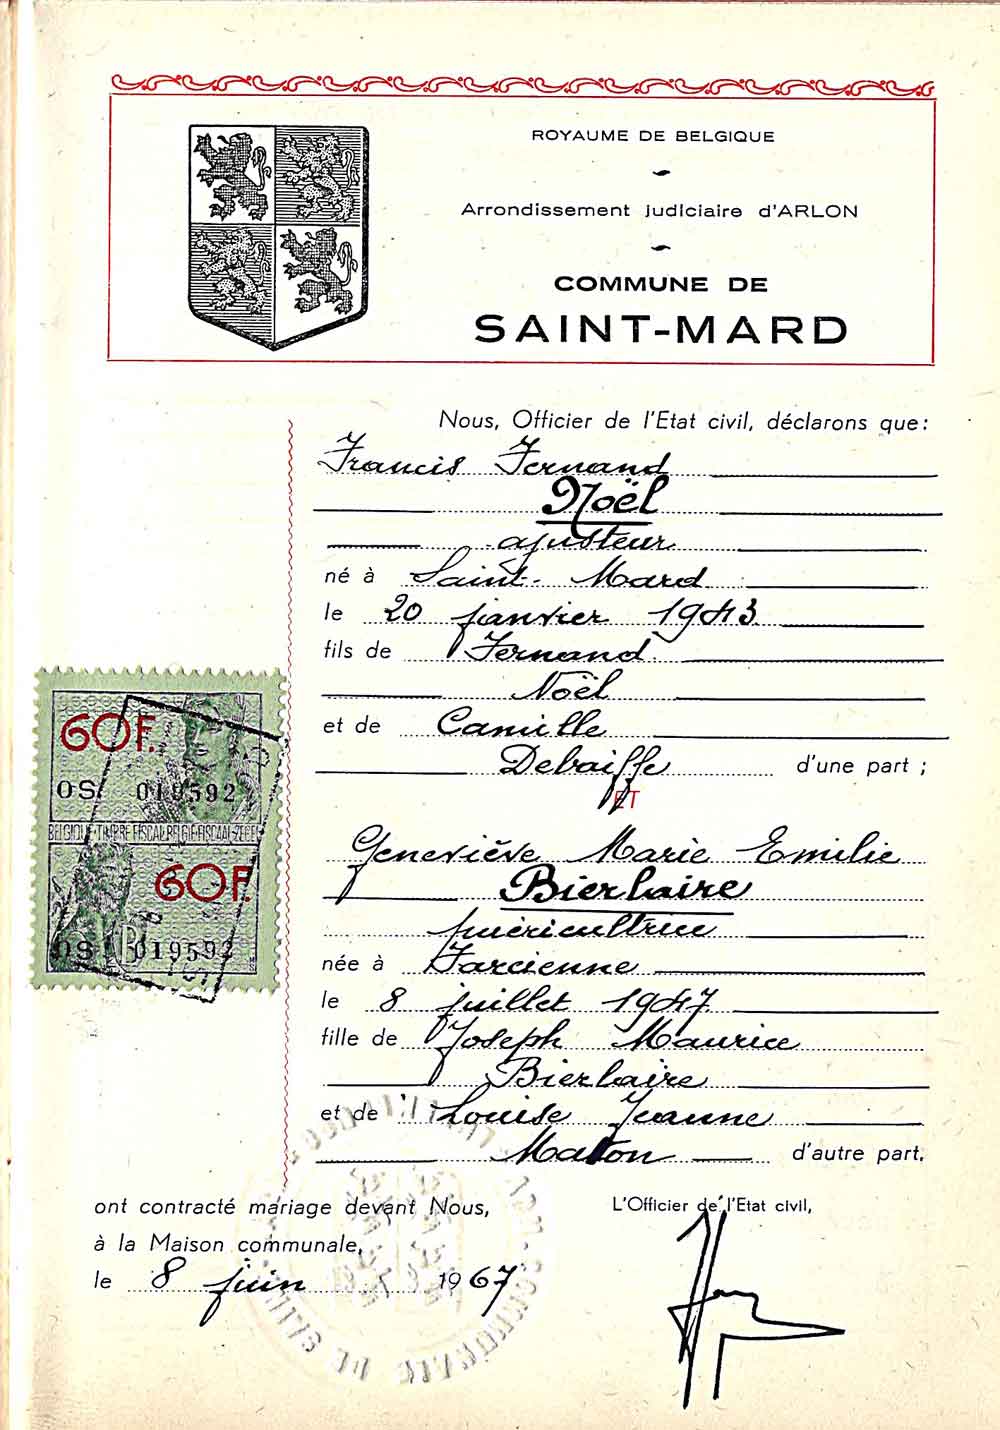 ROYAUME DE BELGIQUE
Arrondissement judiciaire d'ARLON
COMMUNE DE
SAINT-MARD
Nous, Officier de l'Etat civil, déclarons que:
Francis Fernand
Noël
ajusteur
né à Saint-Mard
le 20 janvier 1943
fils de Fernand
Noël
et de Camille
Debaiffe d'une part ;
ET
Geneviève Marie Emilie
Bierlaire
puéricultrice
née à Farcienne
le 8 juillet 1947
fille de Joseph Maurice
Bierlaire
et de Louise Jeanne
Maton d'autre part.
60F.
OS 019592
BELGIQUE-TIMBRE FISCAL BELGIE-FISCAAL-ZEGEL
60F.
OS 019592
ont contracté mariage devant Nous,
à la Maison communale,
le 8 juin 1967
L'Officier de l'Etat civil,